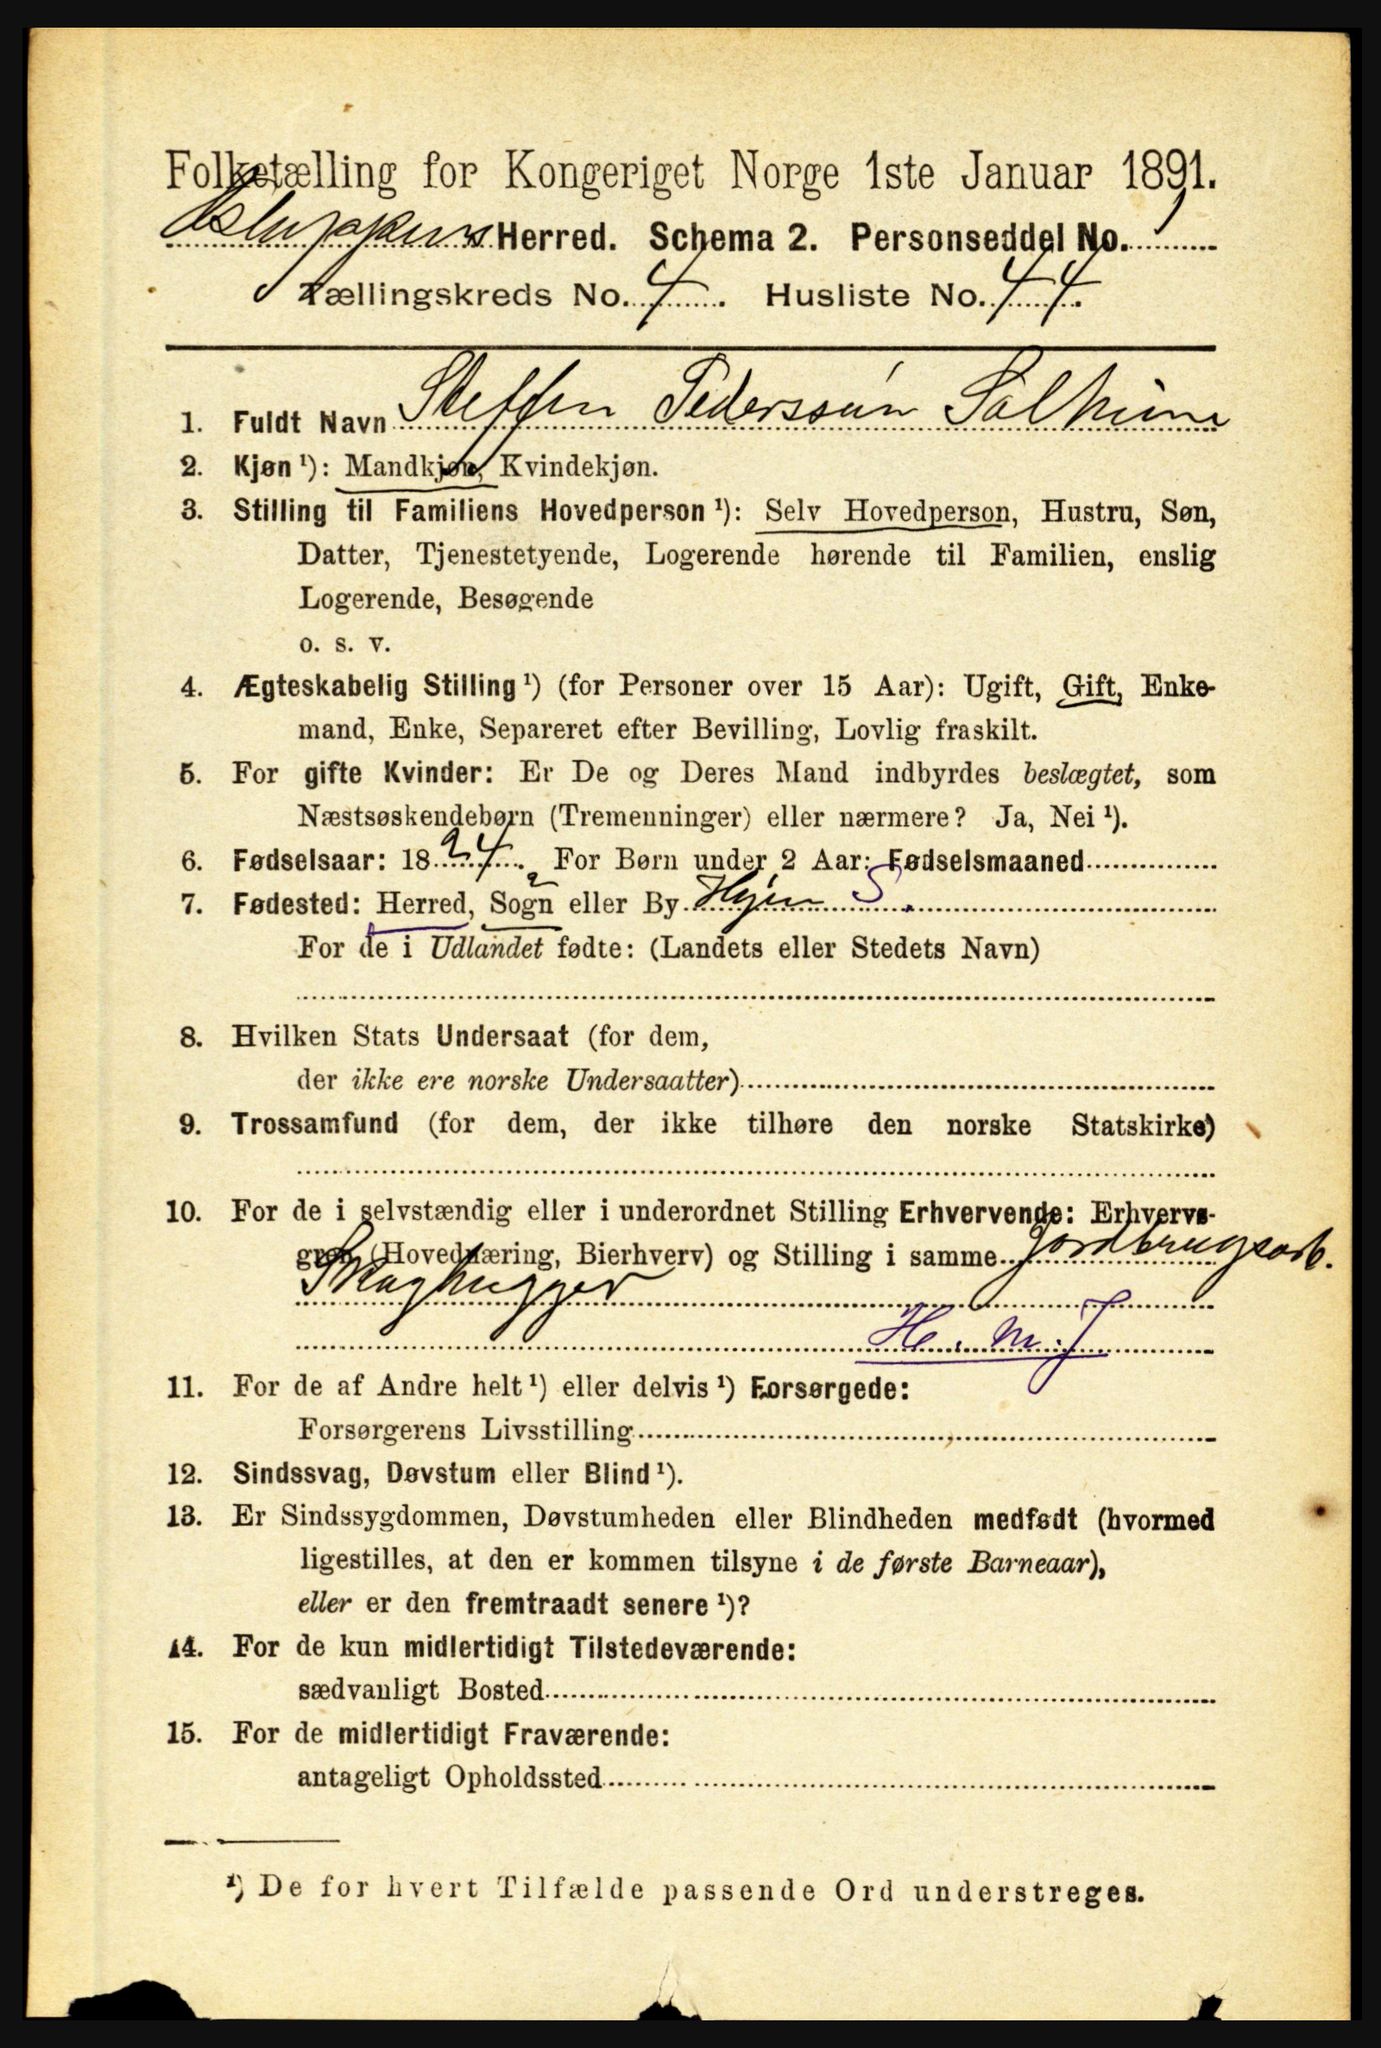 Folketælling for Kongeriget Norge 1ste Januar 1891.
Herred. Schema 2. Personseddel No. 1
Tællingskreds No. 4. Husliste No. 44.
1. Fuldt Navn Steffen Pederssøn Solheim
2. Kjøn ¹): Mandkjøn, Kvindekjøn.
3. Stilling til Familiens Hovedperson ¹): Selv Hovedperson, Hustru, Søn,
Datter, Tjenestetyende, Logerende hørende til Familien, enslig
Logerende, Besøgende
o. s. v.
4. Ægteskabelig Stilling ¹) (for Personer over 15 Aar): Ugift, Gift, Enke-
mand, Enke, Separeret efter Bevilling, Lovlig fraskilt.
5. For gifte Kvinder: Er De og Deres Mand indbyrdes beslægtet, som
Næstsøskendebørn (Tremenninger) eller nærmere? Ja, Nei ¹).
6. Fødselsaar: 1824. For Børn under 2 Aar: Fødselsmaaned
7. Fødested: Herred, Sogn eller By Hyen S.
For de i Udlandet fødte: (Landets eller Stedets Navn)
8. Hvilken Stats Undersaat (for dem,
der ikke ere norske Undersaatter)
9. Trossamfund (for dem, der ikke tilhøre den norske Statskirke)
10. For de i selvstændig eller i underordnet Stilling Erhvervende: Erhvervs-
gren (Hovednæring, Bierhverv) og Stilling i samme Jordbrugsarb.
Skoghugger
H. m. J
11. For de af Andre helt ¹) eller delvis ¹) Forsørgede:
Forsørgerens Livsstilling
12. Sindssvag, Døvstum eller Blind ¹).
13. Er Sindssygdommen, Døvstumheden eller Blindheden medfødt (hvormed
ligestilles, at den er kommen tilsyne i de første Barneaar),
eller er den fremtraadt senere ¹)?
14. For de kun midlertidigt Tilstedeværende:
sædvanligt Bosted
15. For de midlertidigt Fraværende:
antageligt Opholdssted
¹) De for hvert Tilfælde passende Ord understreges.